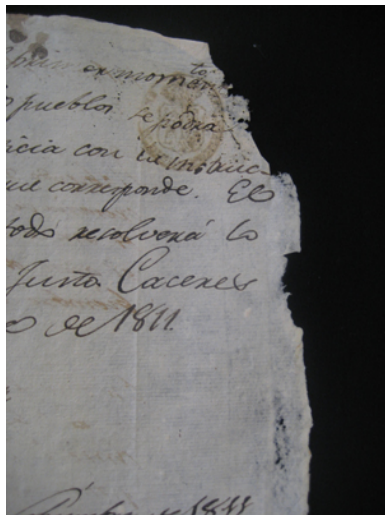 en momento
pueblos se podrá
icia con la instruc-
que corresponde. El
todo resolverá lo
Justa Caceres
de 1811.
1811